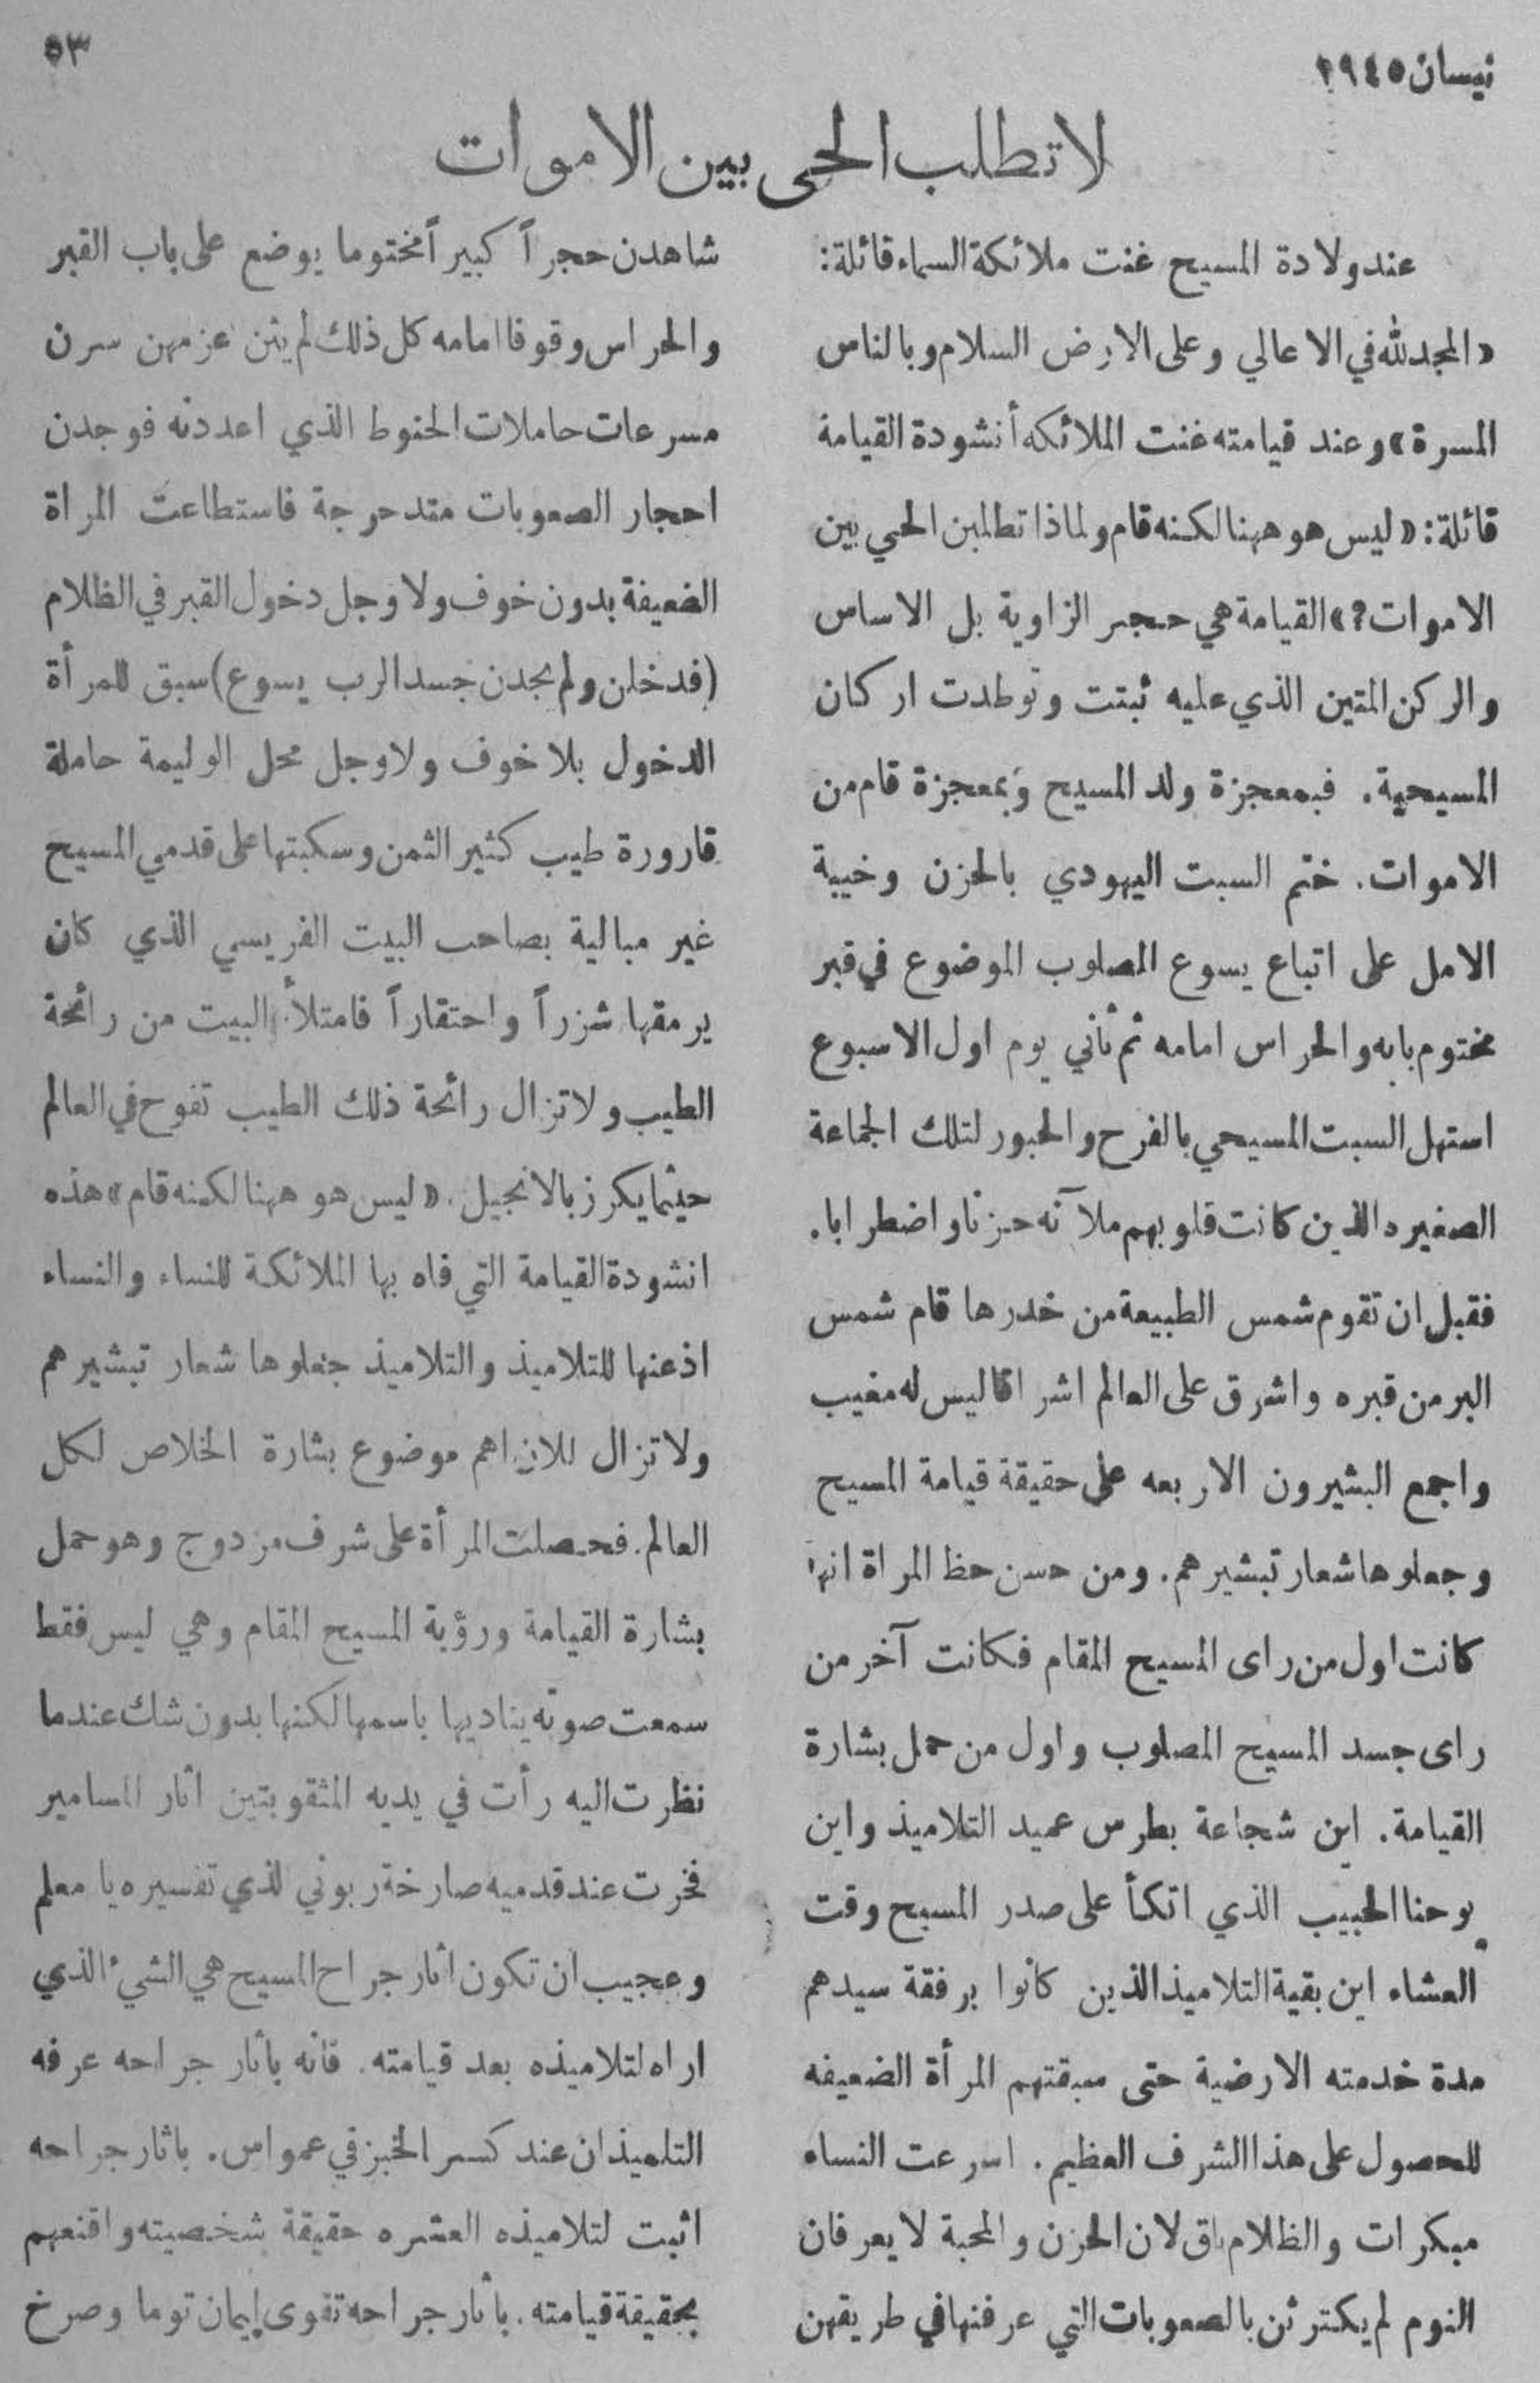 نيسان ١٩٤٥
٥٣
لا تطلب الحي بين الاموات
عند ولادة المسيح غنت ملائكة السماء قائلة:
«المجد لله في الاعالي وعلى الارض السلام وبالناس
المسرة» وعند قيامته غنت الملائكه أنشودة القيامة
قائلة: «ليس هو ههنا لكنه قام ولماذا تطلبن الحي بين
الاموات؟» القيامة هي حجر الزاوية بل الاساس
والركن المتين الذي عليه ثبتت وتوطدت اركان
المسيحية. فبمعجزة ولد المسيح وبمعجزة قام من
الاموات. ختم السبت اليهودي بالحزن وخيبة
الامل على اتباع يسوع المصلوب الموضوع في قبر
مختوم بابه والحراس امامه ثم ثأني يوم اول الاسبوع
استهل السبت المسيحي بالفرح والحبور لتلك الجماعة
الصغيره الذين كانت قلوبهم ملآنه حزنا واضطرابا.
فقبل ان تقوم شمس الطبيعة من خدرها قام شمس
البر من قبره واشرق على العالم اشراقا ليس له مغيب
واجمع البشيرون الاربعه على حقيقة قيامة المسيح
وجعلوها شعار تبشيرهم. ومن حسن حظ المراة انها
كانت اول من راى المسيح المقام فكانت آخر من
راى جسد المسيح المصلوب واول من حمل بشارة
القيامة. اين شجاعة بطرس عميد التلاميذ واين
يوحنا الحبيب الذي اتكأ على صدر المسيح وقت
العشاء اين بقية التلاميذ الذين كانوا برفقة سيدهم
مدة خدمته الارضية حتى سبقتهم المرأة الضعيفه
للحصول على هذا الشرف العظيم. اسرعت النساء
مبكرات والظلام باق لان الحزن والمحبة لا يعرفان
النوم لم يكترثن بالصعوبات التي عرفنها في طريقهن
شاهدن حجراً كبيراً مختوما يوضع على باب القبر
والحراس وقوفا امامه كل ذلك لم يثن عزمهن سرن
مسرعات حاملات الحنوط الذي اعددنه فوجدن
احجار الصعوبات متدحرجة فاستطاعت المراة
الضعيفة بدون خوف ولا وجل دخول القبر في الظلام
(فدخلن ولم يجدن جسد الرب يسوع) سبق للمرأة
الدخول بلا خوف ولا وجل محل الوليمة حاملة
قارورة طيب كثير الثمن وسكبتها على قدمي المسيح
غير مبالية بصاحب البيت الفريسي الذي كان
يرمقها شزراً واحتقاراً فامتلأ البيت من رائحة
الطيب ولا تزال رائحة ذلك الطيب تفوح في العالم
حيثما يكرز بالانجيل. «ليس هو ههنا لكنه قام» هذه
انشودة القيامة التي فاه بها الملائكة للنساء والنساء
اذعنها للتلاميذ والتلاميذ جعلوها شعار تبشيرهم
ولا تزال للان اهم موضوع بشارة الخلاص لكل
العالم. فحصلت المرأة على شرف مزدوج وهو حمل
بشارة القيامة ورؤية المسيح المقام وهي ليس فقط
سمعت صوته يناديها باسمها لكنها بدون شك عندما
نظرت اليه رأت في يديه المثقوبتين اثار المسامير
فخرت عند قدميه صارخة ربوني لذي تفسيره يا معلم
وعجيب ان تكون اثار جراح المسيح هي الشيء الذي
اراه لتلاميذه بعد قيامته. فانه بأثار جراحه عرفه
التلميذان عند كسر الخبز في عمواس. باثار جراحه
اثبت لتلاميذه العشره حقيقة شخصيته واقنعهم
بحقيقة قيامته. بأثار جراحه تقوى إيمان توما وصرخ